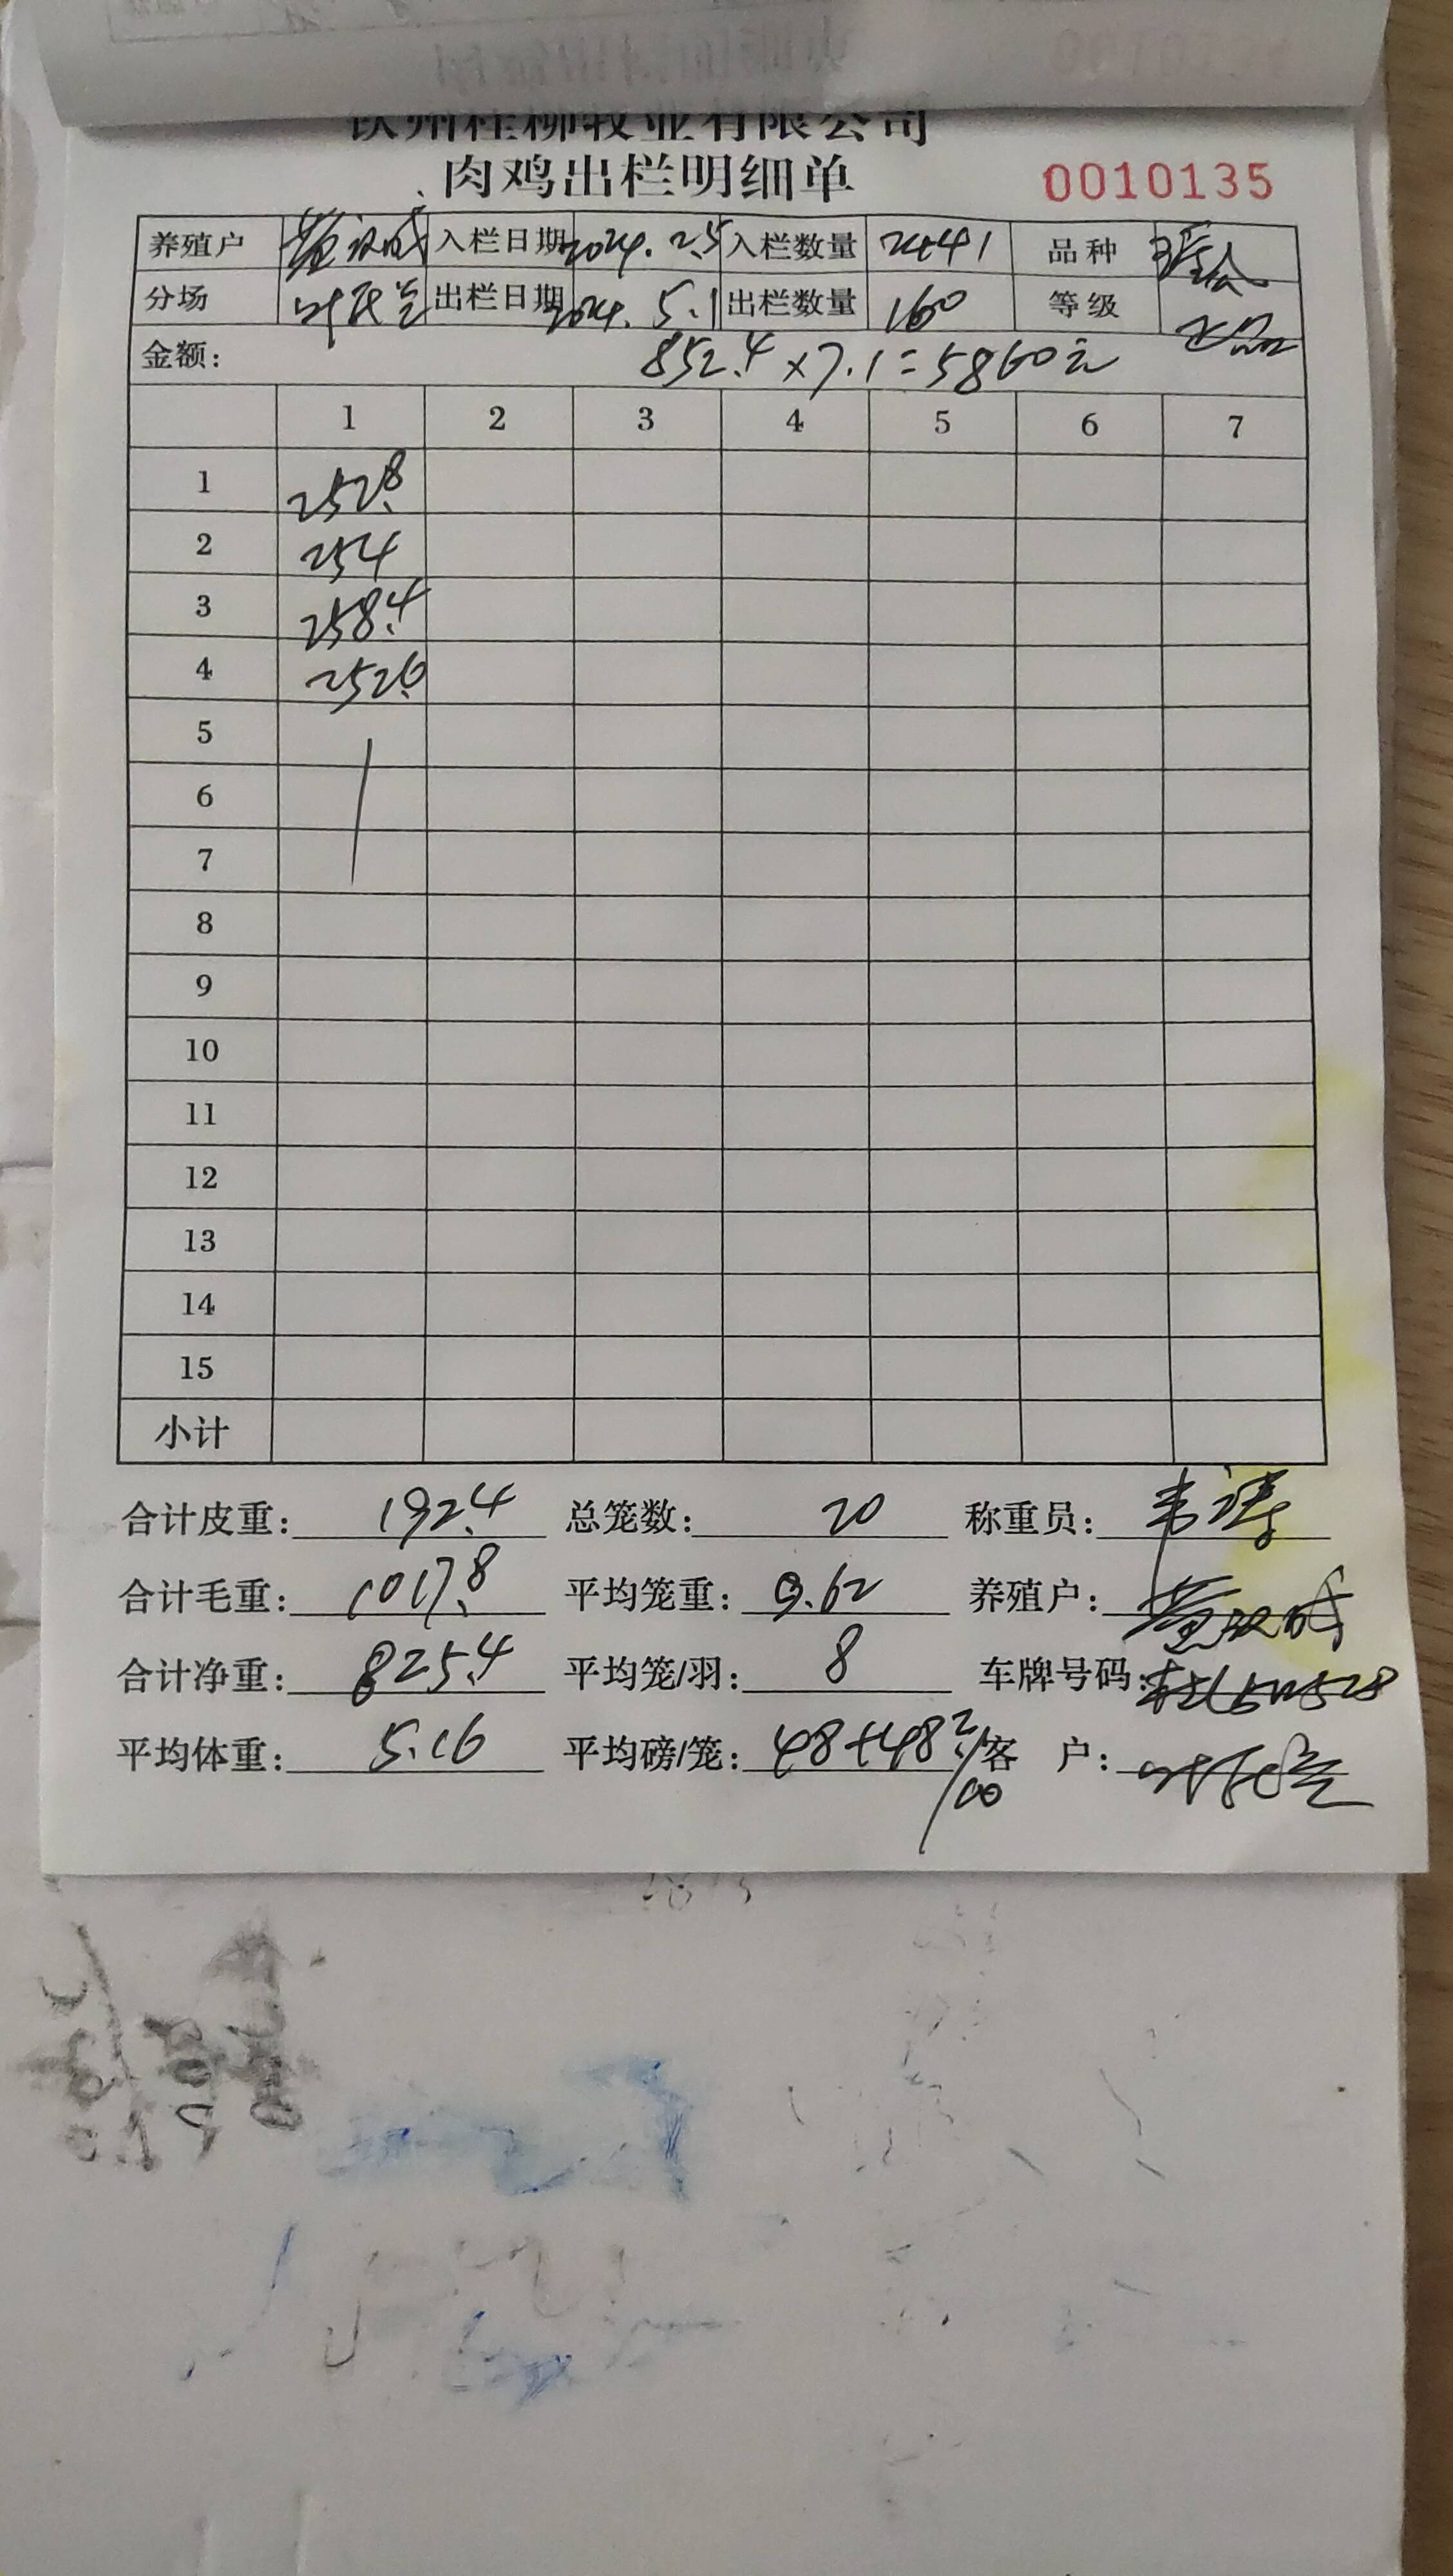 钦州桂柳牧业有限公司
肉鸡出栏明细单 0010135
养殖户 入栏日期 2024.2.5 入栏数量 2441 品种
分场 叶氏兰 出栏日期 2024.5.1 出栏数量 160 等级 正品
金额: 852.4×7.1=5860元
1 2 3 4 5 6 7
1 252.8
2 254
3 258.4
4 252.6
5
6
7
8
9
10
11
12
13
14
15
小计
合计皮重: 192.4 总笼数: 20 称重员:
合计毛重: 1017.8 平均笼重: 9.62 养殖户:
合计净重: 825.4 平均笼/羽: 8 车牌号码:
平均体重: 5.16 平均磅/笼: 48+48.2/10 客 户: